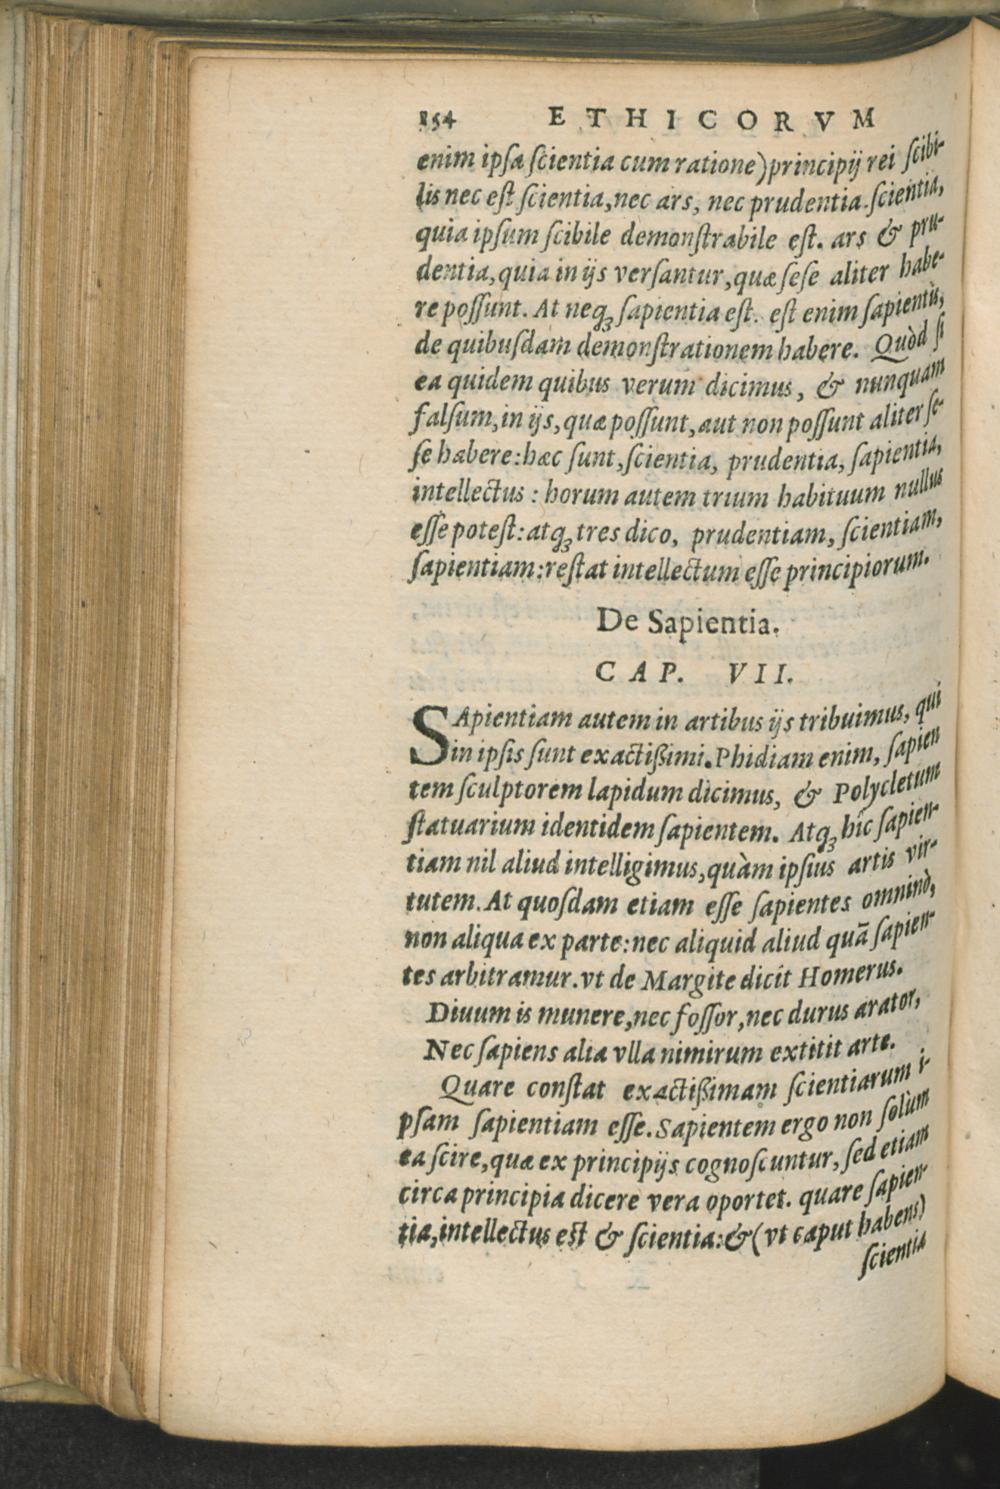 154 ETHICORVM
enim ipsa scientia cum ratione) principij rei scibi-
lis nec est scientia, nec ars, nec prudentia. scientia,
quia ipsum scibile demonstrabile est. ars & pru-
dentia, quia in ijs versantur, quæ sese aliter habe-
re possunt. At neqꝫ sapientia est. est enim sapientis,
de quibusdam demonstrationem habere. Quòd si
ea quidem quibus verum dicimus, & nunquam
falsum, in ijs, quæ possunt, aut non possunt aliter se-
se habere: hæc sunt, scientia, prudentia, sapientia,
intellectus : horum autem trium habituum nullus
esse potest: atqꝫ tres dico, prudentiam, scientiam,
sapientiam: restat intellectum esse principiorum.
De Sapientia.
CAP. VII.
SApientiam autem in artibus ijs tribuimus, qui
in ipsis sunt exactißimi. Phidiam enim, sapien
tem sculptorem lapidum dicimus, & Polycletum
statuarium identidem sapientem. Atqꝫ hîc sapien-
tiam nil aliud intelligimus, quàm ipsius artis vir-
tutem. At quosdam etiam esse sapientes omninò,
non aliqua ex parte: nec aliquid aliud quã sapien-
tes arbitramur. vt de Margite dicit Homerus.
Diuum is munere, nec fossor, nec durus arator,
Nec sapiens alia vlla nimirum extitit arte.
Quare constat exactißimam scientiarum i-
psam sapientiam esse. Sapientem ergo non solùm
ea scire, quæ ex principijs cognoscuntur, sed etiam
circa principia dicere vera oportet. quare sapien-
tia, intellectus est & scientia: & (vt caput habens)
scientia